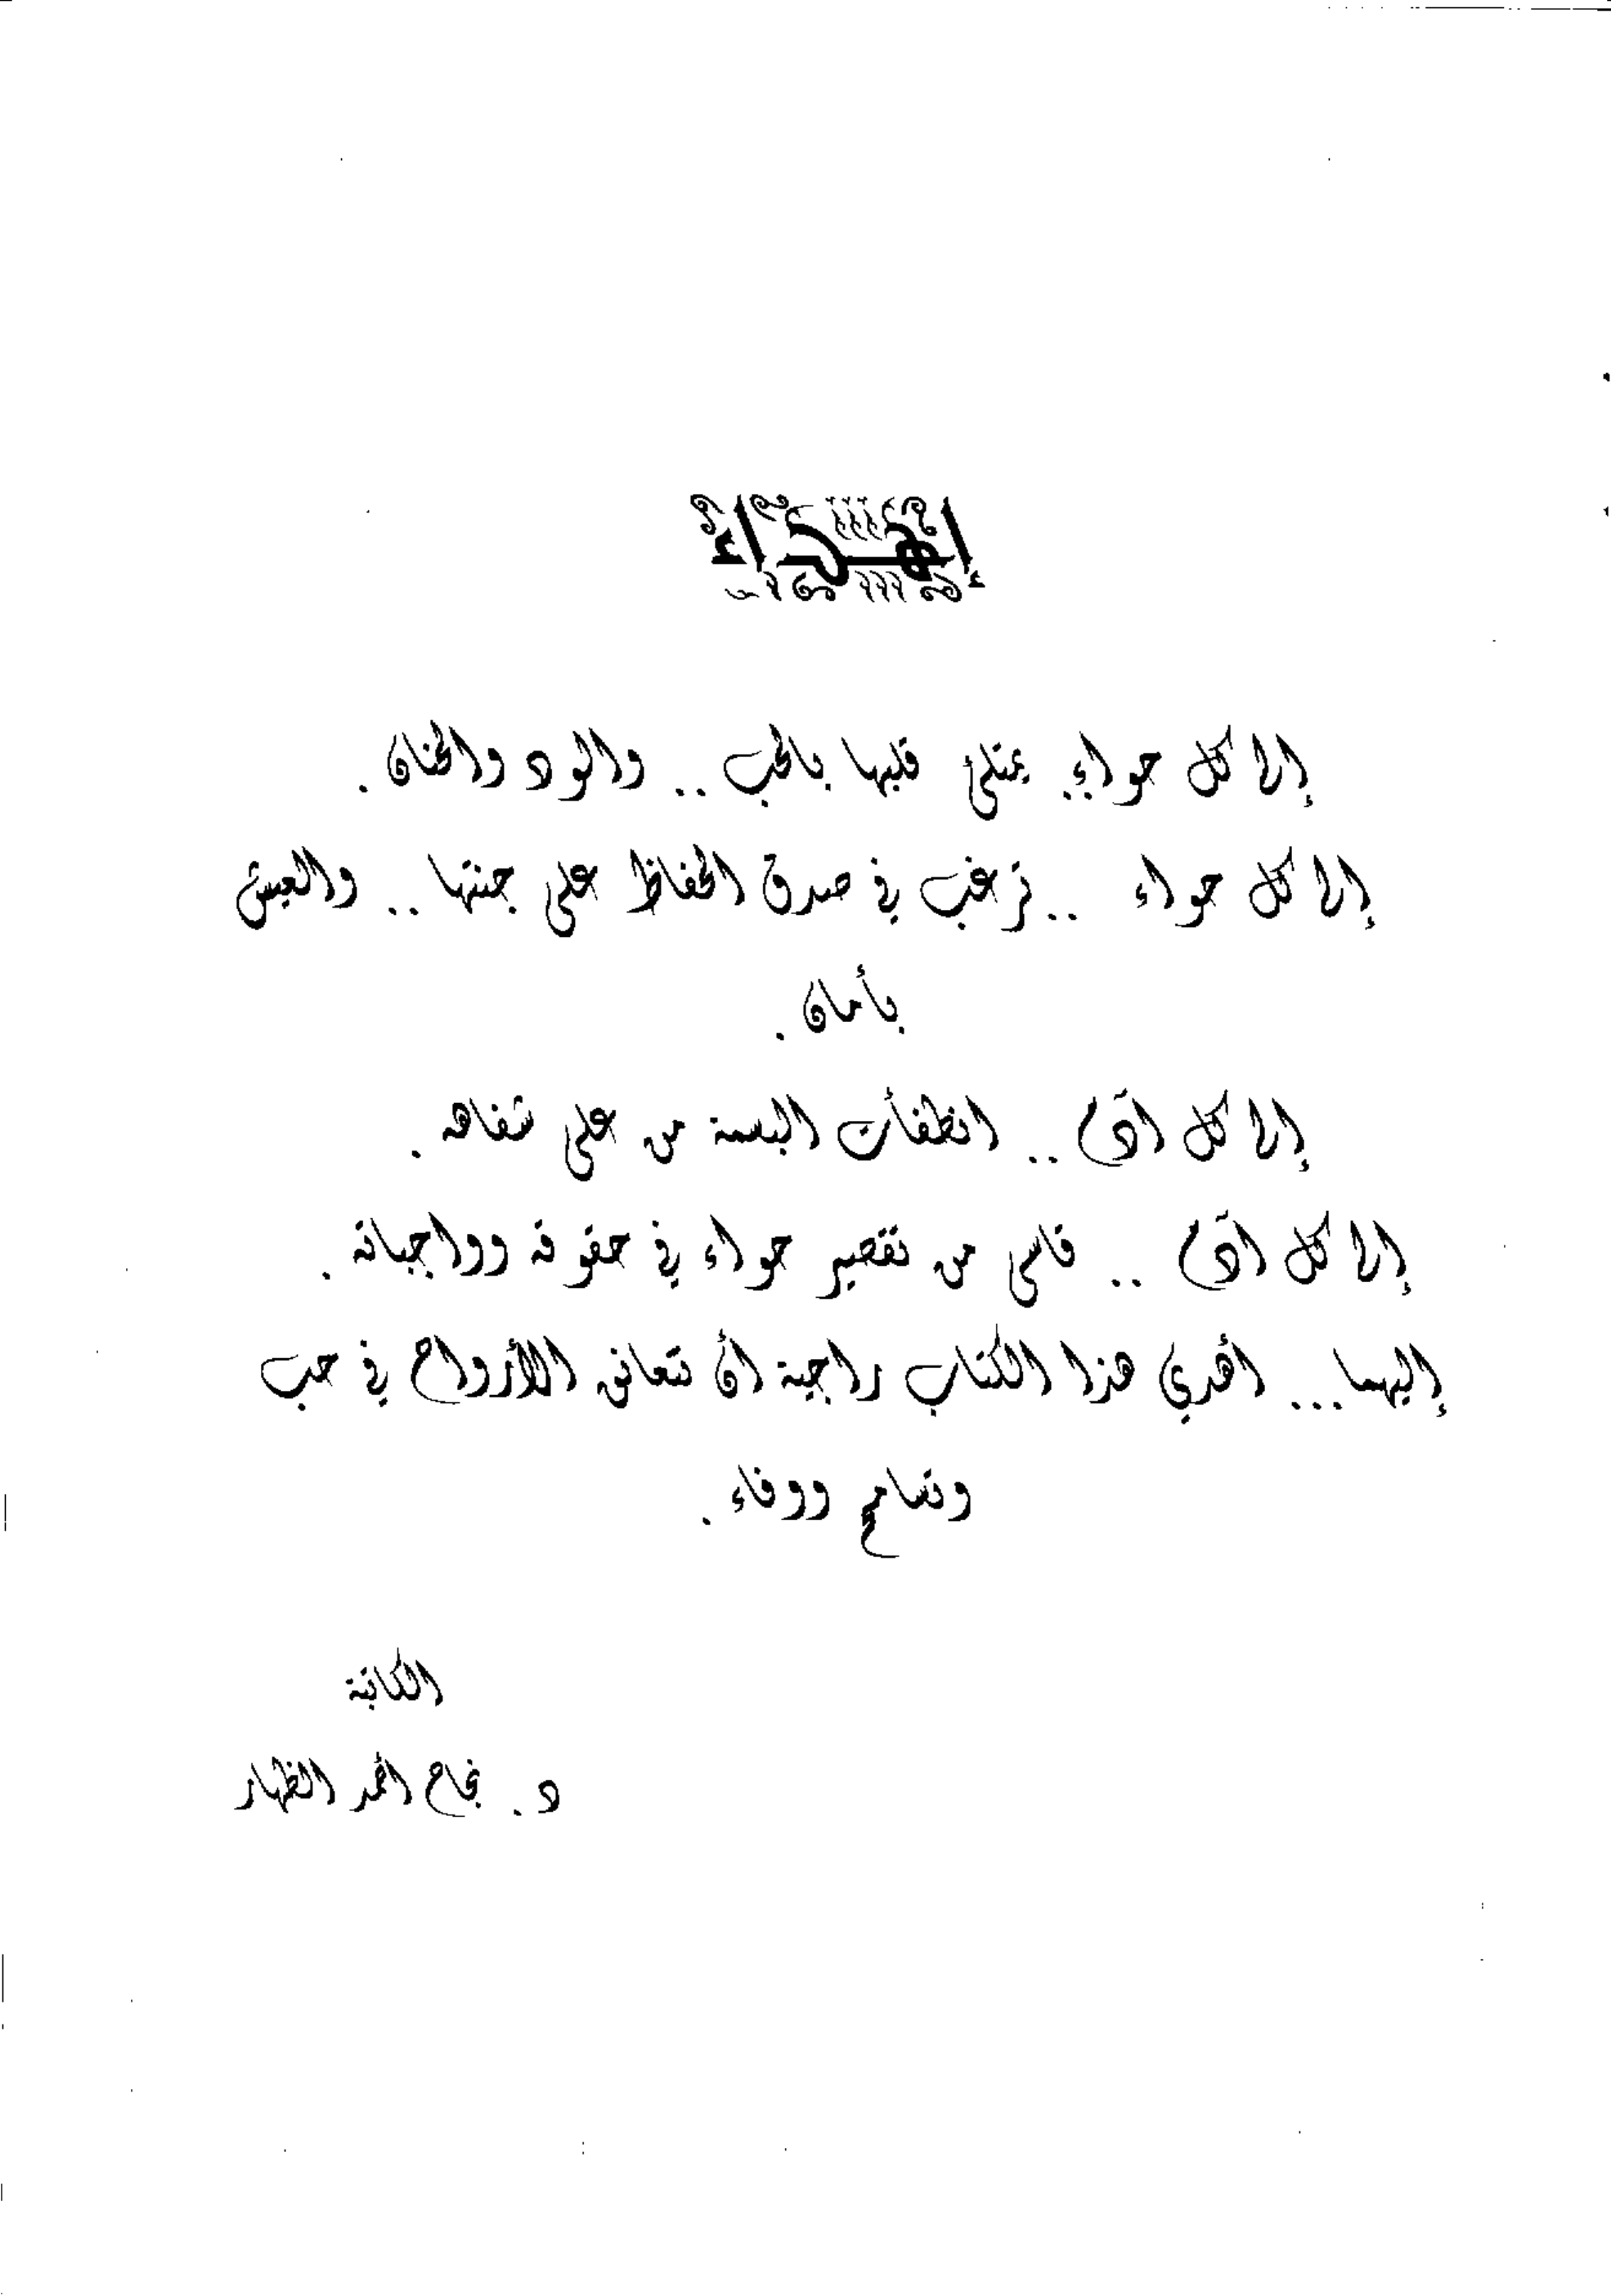 إهداء
إلى كل حواء.. يمتلئ قلبها بالحب .. والود والحنان .
إلى كل حواء .. ترغب في صدق الحفاظ على جنتها .. والعيش
بأمان .
إلى كل آدم .. انطفأت البسمة من على شفاهه .
إلى كل آدم .. قاسى من تقصير حواء في حقوقه وواجباته .
إليهما... أهدي هذا الكتاب راجية أن تتعانق الأرواح في حب
وتسامح ووفاء .
الكاتبة
د. نجاح أحمد الظهار